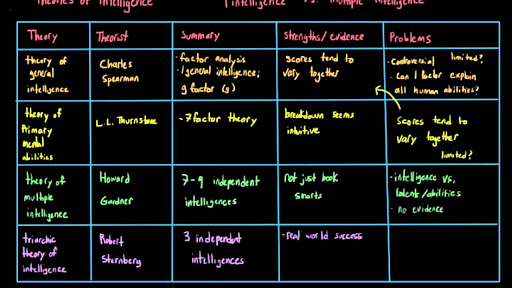 Theories of Intelligence
1 intelligence vs. Multiple Intelligence
Theory
Theorist
Summary
Strengths/evidence
Problems
theory of
general
intelligence
Charles
Spearman
-factor analysis
-1 general intelligence;
g factor (g)
scores tend to
vary together
-controversial limited?
-Can 1 factor explain
all human abilities?
theory of
Primary
mental
abilities
L.L. Thurnstone
-7 factor theory
breakdown seems
intuitive
scores tend to
vary together
limited?
theory of
multiple
intelligence
Howard
Gardner
7-9 independent
intelligences
not just book
smarts
-intelligence vs.
talents/abilities
-no evidence
triarchic
theory of
intelligence
Robert
Sternberg
3 independent
intelligences
-real world success